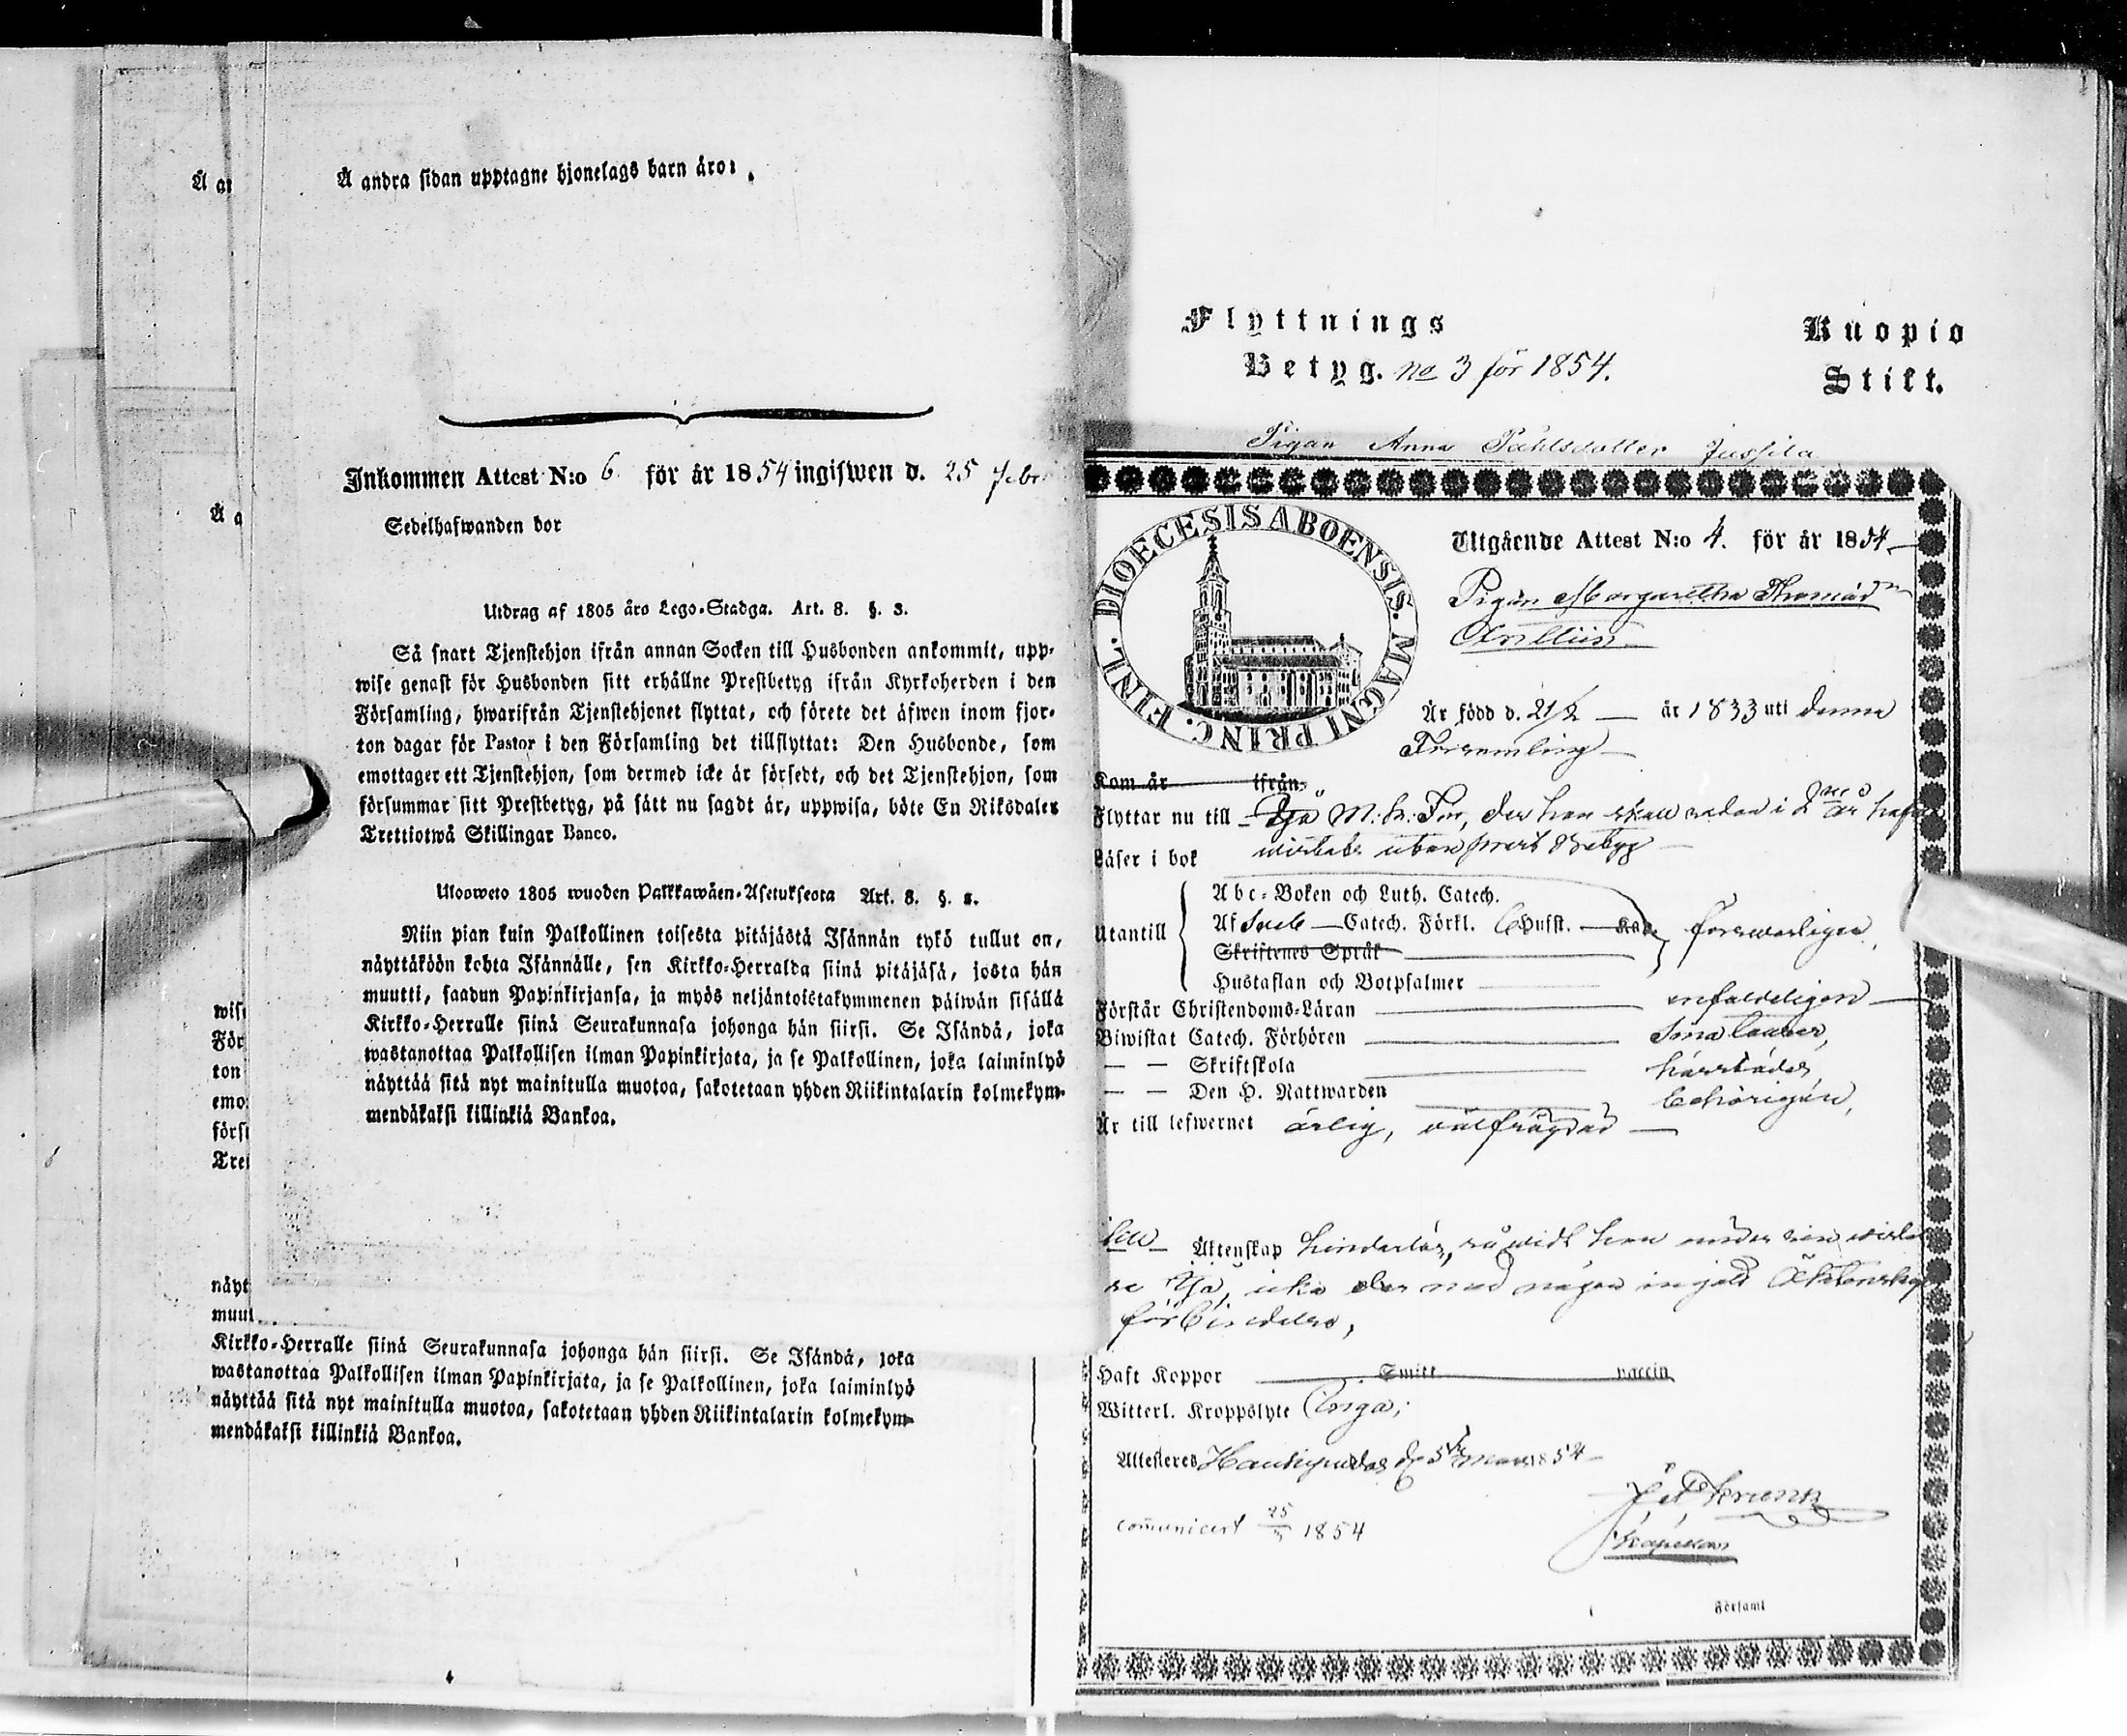 Å an
Å andra sidan upptagne hjonelags barn äro:
Inkommen Attest N:o 6. för år 1854 ingifwen d. 25 Febr
Å a
Sedelhafwanden bor
Utdrag af 1805 års Lego-Stadga. Art. 8. §. 3.
Så snart Tjenstehjon ifrån annan Socken till Husbonden ankommit, upp-
wise genast för Husbonden sitt erhållne Prestbetyg ifrån Kyrkoherden i den
Församling, hwarifrån Tjenstehjonet flyttat, och förete det äfwen inom fjor-
ton dagar för Pastor i den Församling det tillflyttat: Den Husbonde, som
emottager ett Tjenstehjon, som dermed icke är försedt, och det Tjenstehjon, som
försummar sitt Prestbetyg, på sätt nu sagdt är, uppwisa, böte En Riksdaler
Trettiotwå Skillingar Banco.
Ulosweto 1805 wuoden Palkkawäen-Asetuksesta Art. 8. §. 3.
Niin pian kuin Palkollinen toisesta pitäjästä Isännän tykö tullut on,
näyttäköön kohta Isännälle, sen Kirkko-Herralda siinä pitäjäsä, josta hän
muutti, saadun Papinkirjansa, ja myös neljäntoistakymmenen päiwän sisällä
Kirkko-Herralle siinä Seurakunnasa johonga hän siirsi. Se Isändä, joka
wastanottaa Palkollisen ilman Papinkirjata, ja se Palkollinen, joka laiminlyö
näyttää sitä nyt mainitulla muotoa, sakotetaan yhden Riikintalarin kolmekym-
mendäkaksi killinkiä Bankoa.
wise
För
ton
emo
förs
Tre
näyt
muu
Kirkko-Herralle siinä Seurakunnasa johonga hän siirsi. Se Isändä, joka
wastanottaa Palkollisen ilman Papinkirjata, ja se Palkollinen, joka laiminlyö
näyttää sitä nyt mainitulla muotoa, sakotetaan yhden Riikintalarin kolmekym-
mendäkaksi killinkiä Bankoa.
Flyttnings
Betyg. No 3 för 1854.
Kuopio
Stift.
Pigan Anna Påhlsdotter Jussila
DIOECESIS ABOENSIS. MAGNI PRINC. FINL.
Utgående Attest N:o 4. för år 1854
Pigan Margaretha Thomasd:r
Är född d. 21/2 — år 1833 uti denna
Församling
Kom år ifrån
Flyttar nu till Ijo M. Fr. der hon skall redan i 2 år hafva
wistats utan prest Betyg
Läser i bok
Utantill
Abc-Boken och Luth. Catech.
Af Sveb — Catech. Förkl. 6 Hufst. — försvarligen
Skriftenes Språk
Hustaflan och Botpsalmer
Förstår Christendoms-Läran enfaldeligen
Biwistat Catech. Förhören
— — Skriftskola
— — Den H. Nattwarden behörigen,
Är till lefwernet ärlig, välfrägdad
till Äktenskap hinderlös, så vidt hon under sin
Ijo, icke der med någon ingått Äktenskaps
förbindelse,
Haft Koppor Smitt vaccin
Witterl. Kroppslyte Inga;
Attesteres Haukipudas d. 5 Mars 1854
comunicert 25/3 1854
Kapellan
Församl